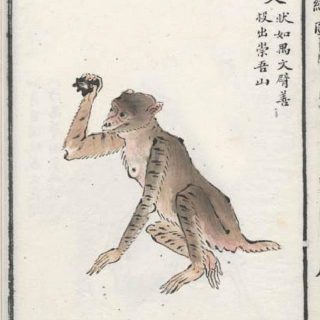 狀如禺文臂善
投出崇吾山